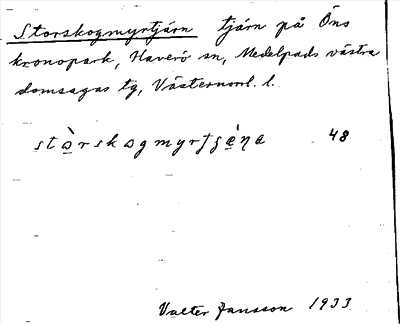 Storskogmyrtjärn tjärn på Öns
kronopark, Haverö sn, Medelpads västra
domsagas tg, Västernorrl. l.
48
Valter Jansson 1933